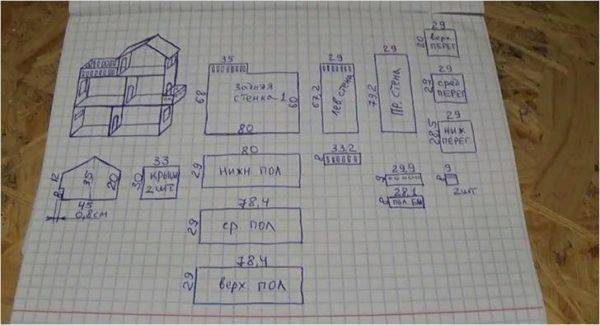 35
68
задняя
стенка 1
60
80
29
67,2
лев стена
29
79,2
ПР. СТЕНА
29
20
верх
ПЕРЕГ
29
29
сред
ПЕРЕГ
29
28,5
НИЖ
ПЕРЕГ
12
8
35
20
45
0,8см
33
30
КРЫШ
2 шт
80
29
НИЖН ПОЛ
33,2
8
29,9
9
9
2 шт
28,1
8
ПОЛ БАЛ
78,4
29
СР ПОЛ
78,4
29
верх ПОЛ